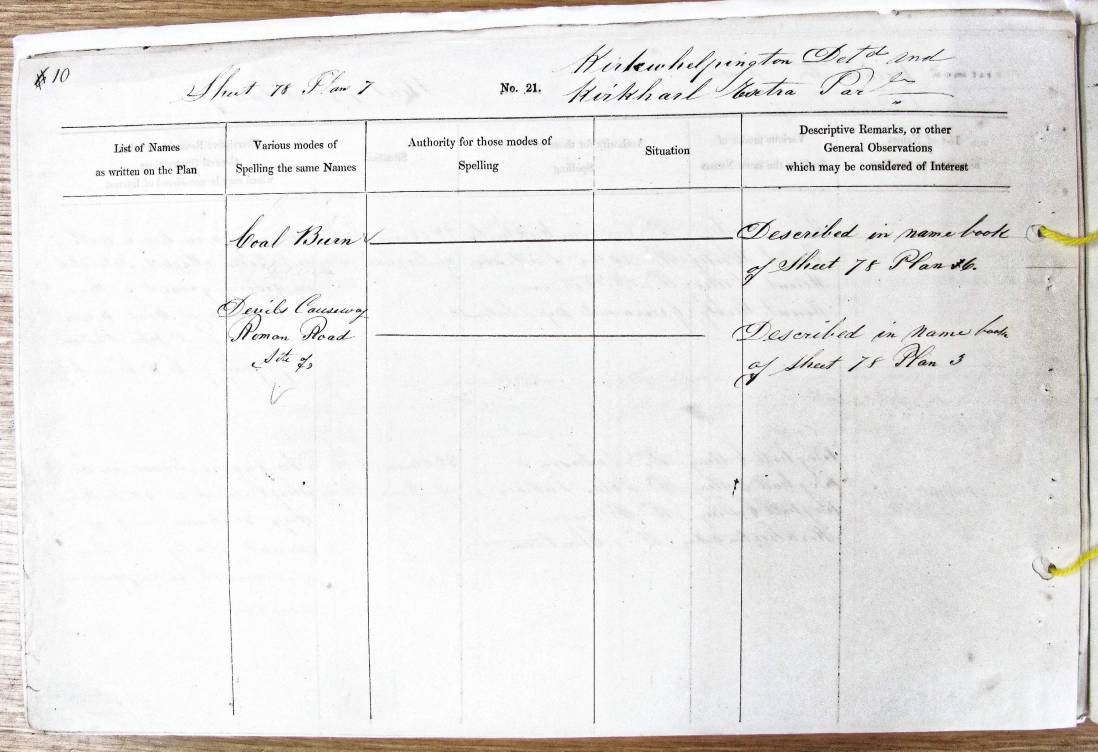 10
Sheet 78 Plan 7
No. 21.
Kirkwhelpington Detd and
Kirkharl Extra Par
List of Names
as written on the Plan
Various modes of
Spelling the same Names
Authority for those modes of
Spelling
Situation
Descriptive Remarks, or other
General Observations
which may be considered of Interest
Coal Burn
Described in name book
of Sheet 78 Plan 6.
Devils Causeway
Roman Road
Site of
Described in name book
of Sheet 78 Plan 3